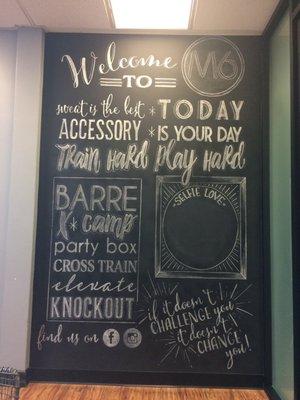 Welcome
TO
M6
sweat is the best * TODAY
ACCESSORY * IS YOUR DAY
TRAIN HARD PLAY HARD
BARRE
X * camp
party box
CROSS TRAIN
elevate
KNOCKOUT
find us on f
SELFIE LOVE
if it doesn't
CHALLENGE you
it doesn't
CHANGE
you!